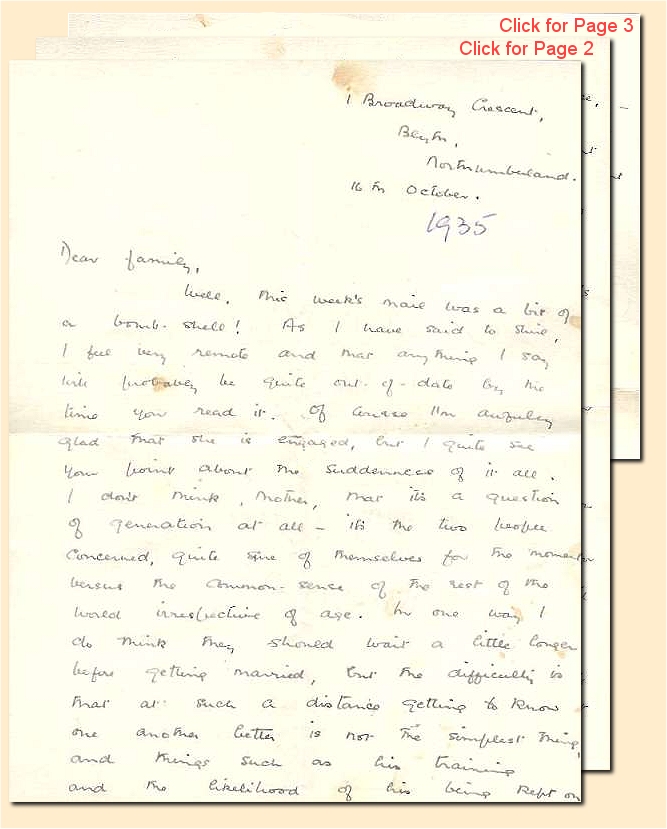 Click for Page 3
Click for Page 2
1 Broadway Crescent,
Blyth,
Northumberland.
16th October.
1935
Dear family,
Well, this week's mail was a bit of
a bomb-shell! As I have said to
I feel very remote and that anything I say
will probably be quite out-of-date by the
time you read it. Of course I'm awfully
glad that she is engaged, but I quite see
your point about the suddenness of it all.
I don't think, Mother, that it's a question
of generation at all – it's the two people
concerned, quite sure of themselves for the moment
versus the common-sense of the rest of the
world irrespective of age. In one way I
do think they should wait a little longer
before getting married, but the difficulty is
that at such a distance getting to know
one another better is not the simplest thing,
and things such as his training
and the likelihood of his being kept on